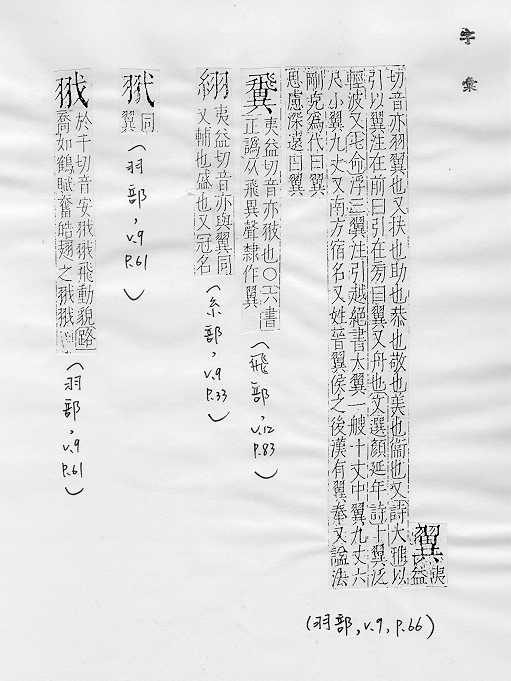 字彙
翼夷益
切音亦羽翼也又扶也助也恭也敬也美也衞也又詩大雅以
引以翼注在前曰引在旁曰翼又舟也文選顏延年詩千翼泛
輕波又 俞浮三翼注引越絕書大翼一艘十丈中翼九丈六
尺小翼九丈又南方宿名又姓晉翼侯之後漢有翼奉又諡法
剛克爲代曰翼
思慮深遠曰翼
(羽部, v.9, p.66)
夷益切音亦 也○六書
正譌从飛異聲隸作翼
(飛部, v.12 p.83)
夷益切音亦與翼同
又輔也盛也又冠名
(糸部, v.9 p.33)
同翼
(羽部, v.9 p.61)
於千切音安 飛動貌路
喬如鶴賦奮皓翅之
(羽部, v.9 p.61)